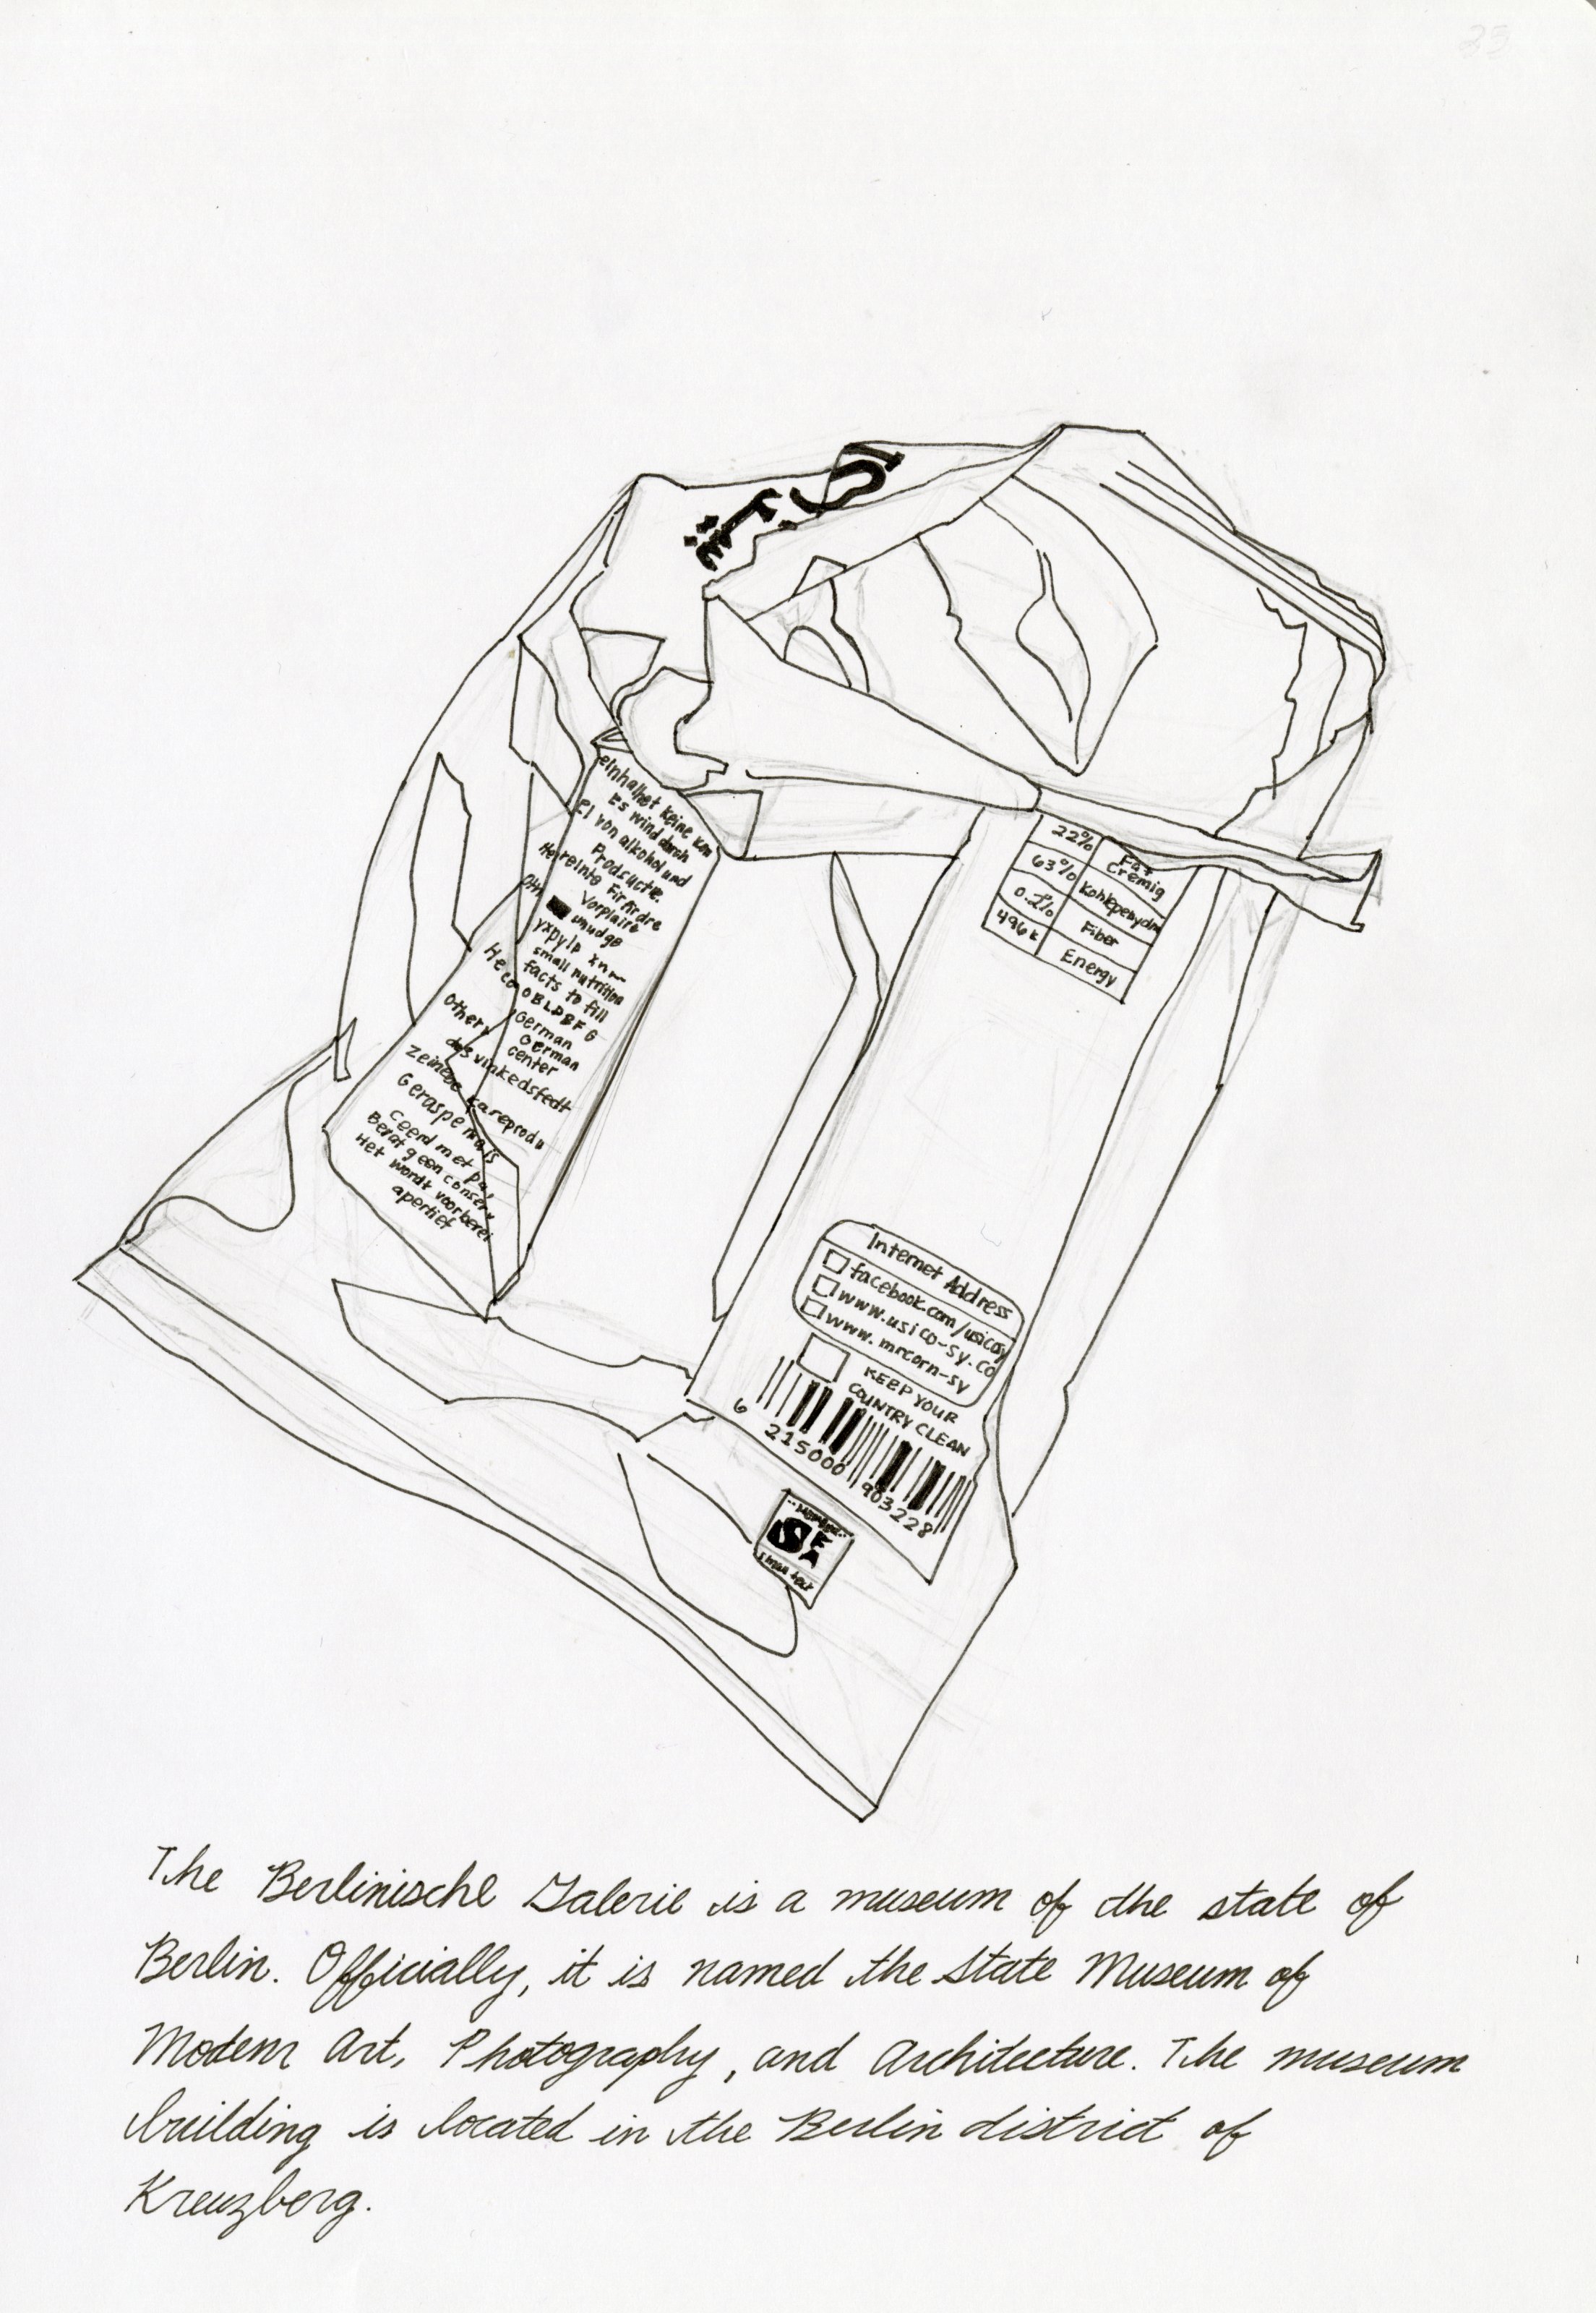 einhaltet keine kon
Es wind durch
El von alkohol und
Productie.
Hereinto Firfirdre
Vorplaire
unudge
yxpylp
small nutrition
facts to fill
OBLPBFG
German
German
center
Other
das vinkedsfedt
Zeinese careprodu
Geraspe mais
Ceerd met pal
Berat geen conserv
Het wordt voorberei
apertief
22% Fat
Cremig
63% Kohlepehydn
0.2% Fiber
496k Energy
Internet Address
facebook.com/usicosy
www.usico-sy.co
www.mrcorn-sy
KEEP YOUR
COUNTRY CLEAN
6 215000 903228
SEA
The Berlinische Galerie is a museum of the state of
Berlin. Officially, it is named the State Museum of
Modern Art, Photography, and Architecture. The museum
building is located in the Berlin district of
Kreuzberg.